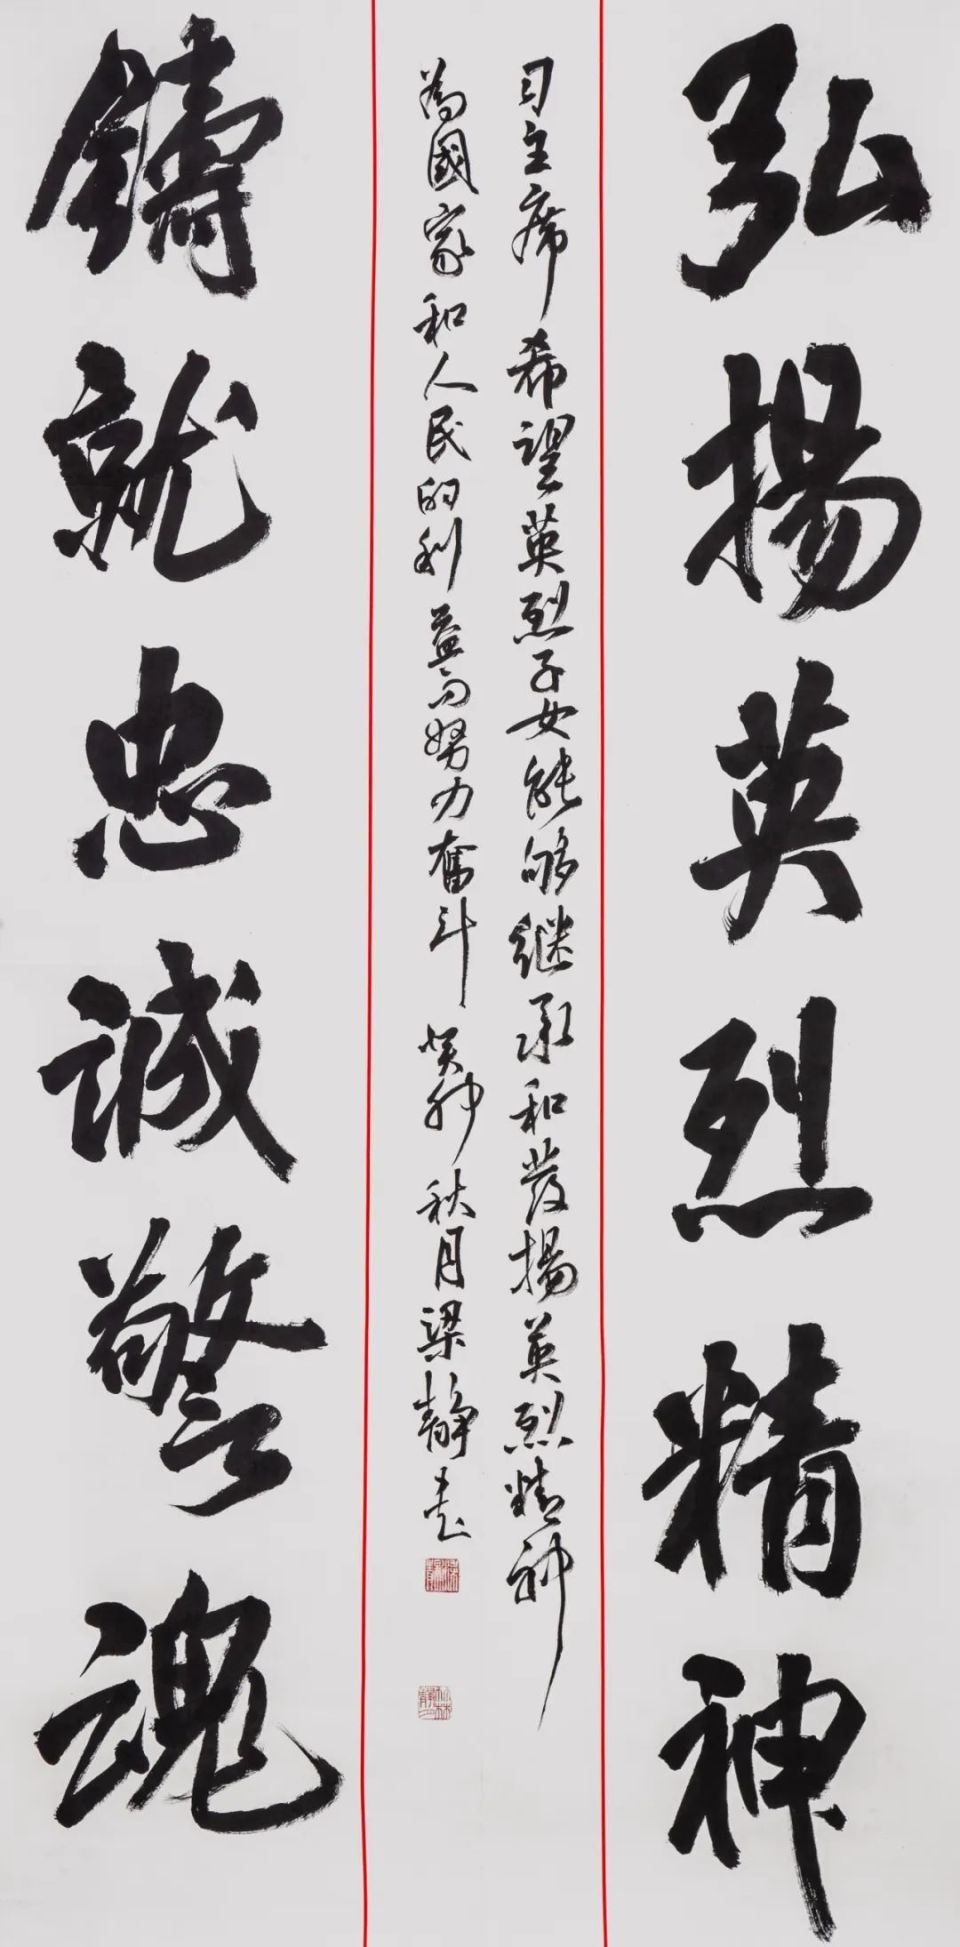 弘揚英烈精神
习主席希望英烈子女能够继承和發揚英烈精神
為國家和人民的利益而努力奮斗 癸卯秋月梁靜書
鑄就忠誠警魂